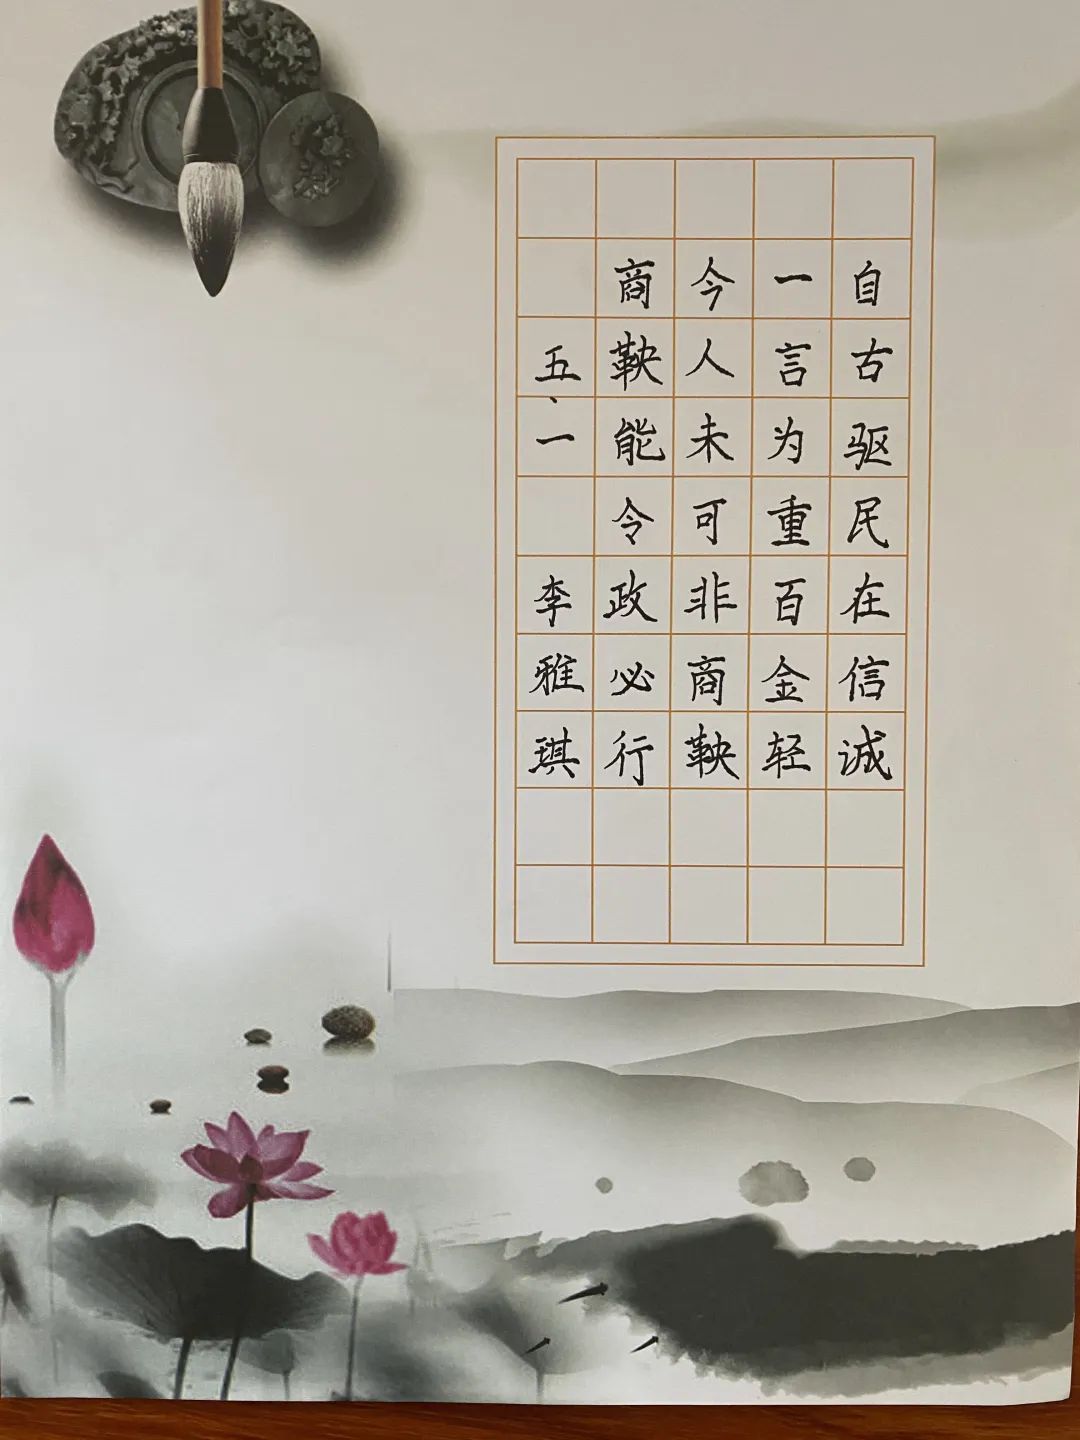 自古驱民在信诚
一言为重百金轻
今人未可非商鞅
商鞅能令政必行
五、一 李雅琪